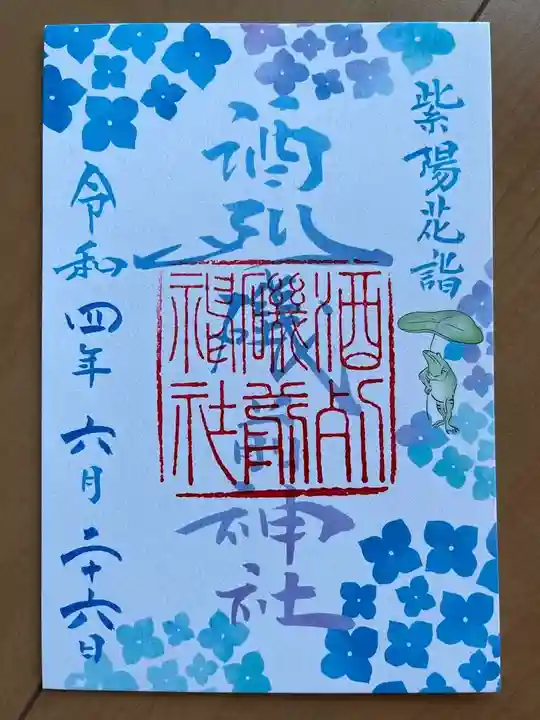 紫陽花詣
酒列磯前神社
酒列
磯前
神社
令和四年六月二十六日